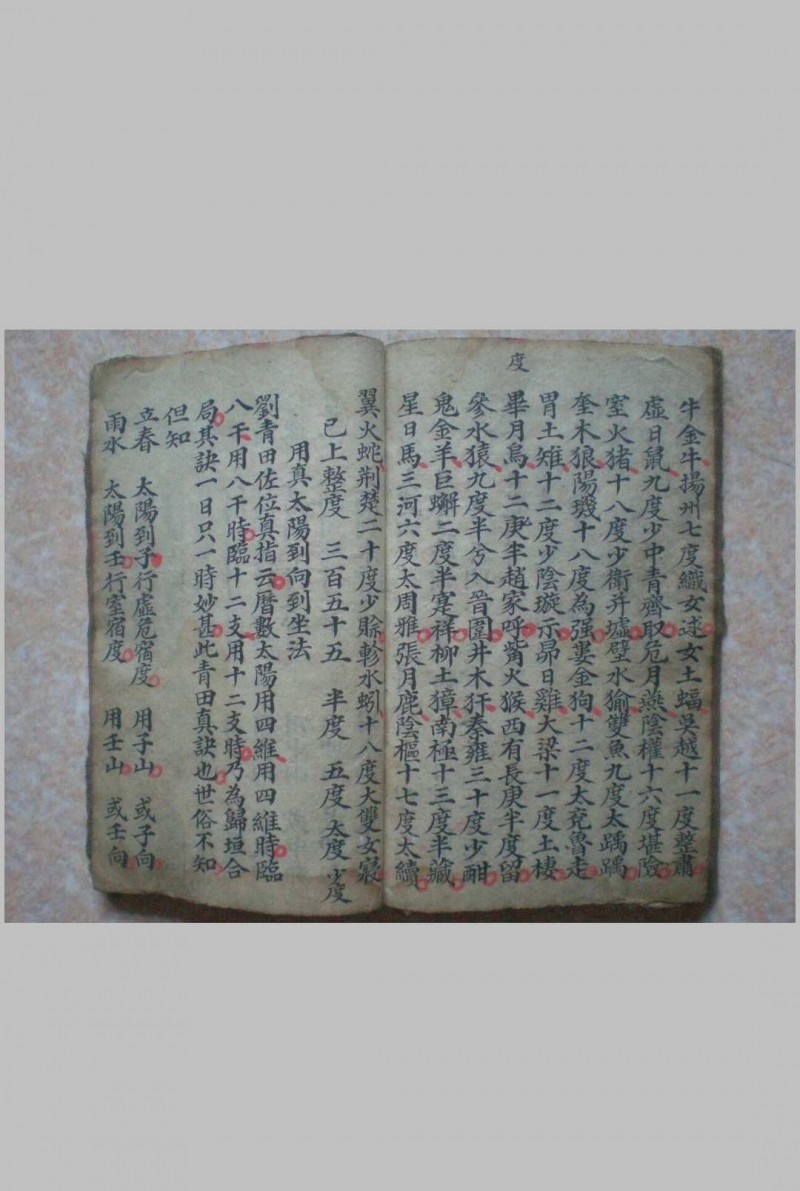 度
牛金牛揚州七度織女逑女土蝠吳越十一度整肅
虛日鼠九度少中青齊取危月燕陰權十六度堪險
室火猪十八度少衛并墟壁水㺄雙魚九度太踽踽
奎木狼陽璣十八度為强婁金狗十二度太兗魯走
胃土雉十二度少陰璇示昴日雞大梁十一度土棲
畢月烏十二庚半趙家呼觜火猴西有長庚半度留
參水猿九度半兮入晉圍井木犴秦雍三十度少酣
鬼金羊巨蠏二度半寔祥柳土獐南極十三度半藏
星日馬三河六度太周雅張月鹿陰樞十七度太續
翼火蛇荆楚二十度少賖軫水蚓十八度大雙女寂
已上整度 三百五十五 半度 五度 太度 少度
用真太陽到向到坐法
劉青田佐位真指云曆數太陽用四維用四維時臨
八干用八干時臨十二支用十二支時乃為歸垣合
局其訣一日只一時妙甚此青田真訣也世俗不知
但知
立春 太陽到子行虛危宿度 用子山 或子向
雨水 太陽到壬行室宿度 用壬山 或壬向